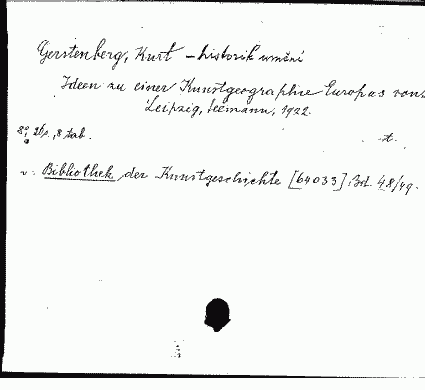 Gerstenberg, Kurt - historik umění
Ideen zu einer Kunstgeographie Europas von
Leipzig, Seemann, 1922.
8°, 26s., 8 tab. t.
v: Bibliothek der Kunstgeschichte [64033], Bd. 48/49.